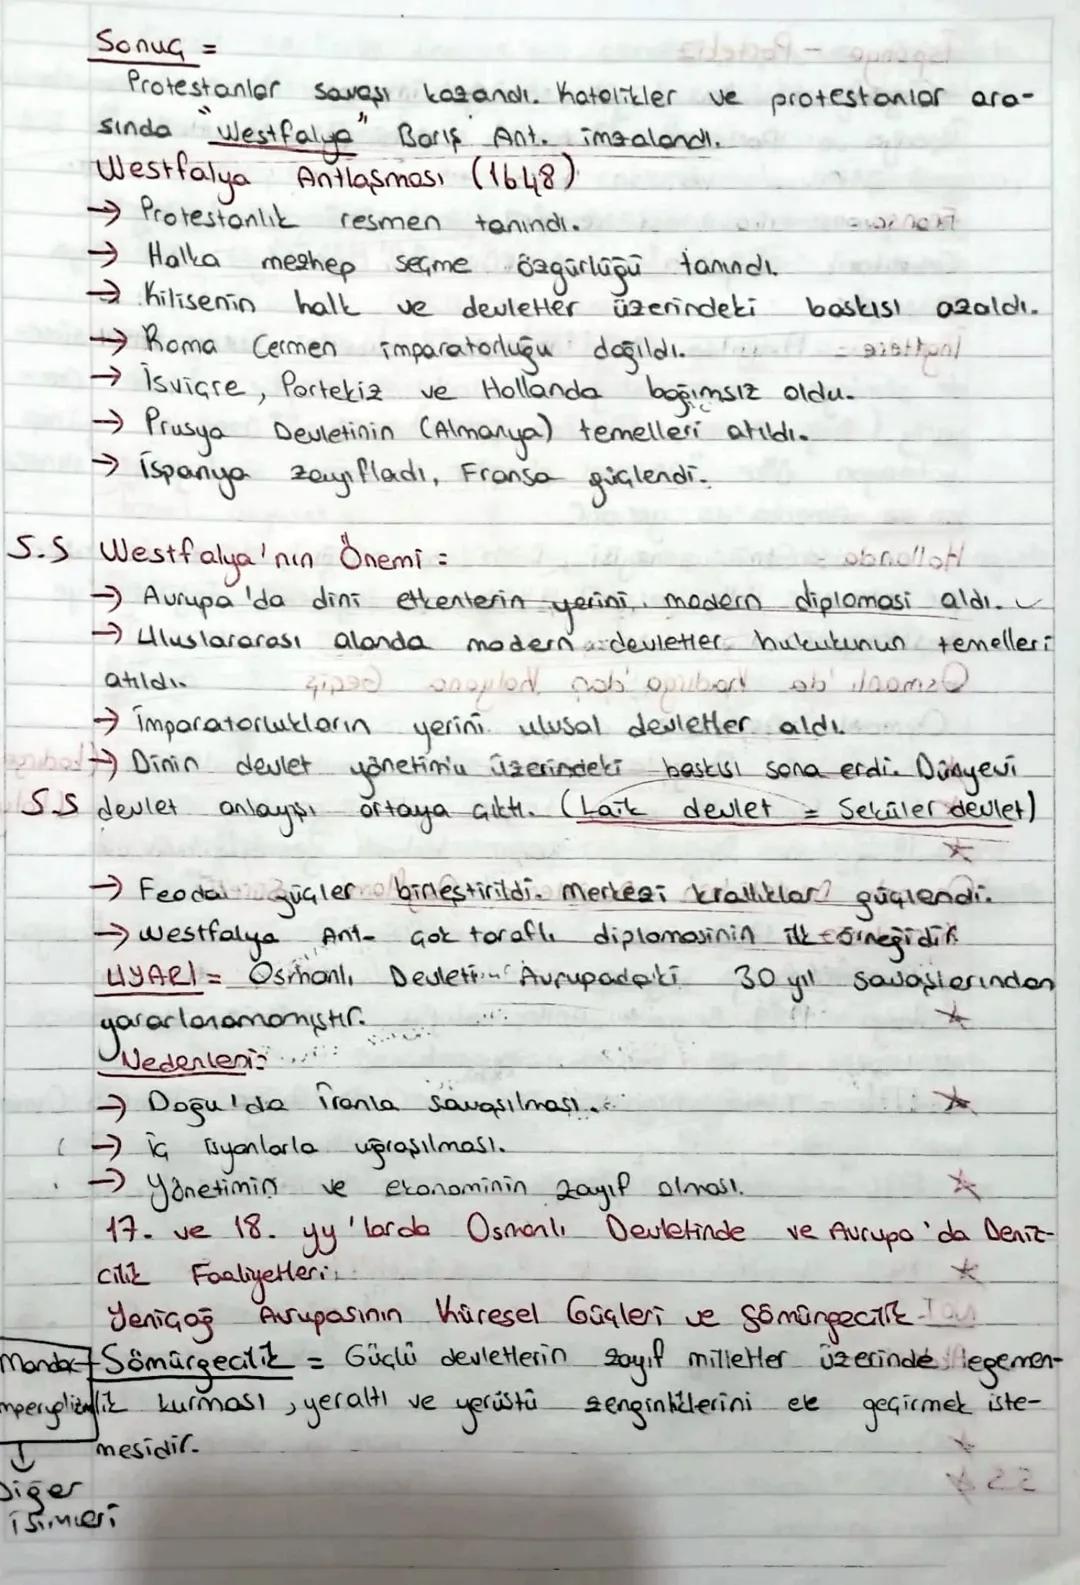 Sonuç =
Protestanlar savaşı kazandı. Katolikler ve protestanlar ara-
sında "Westfalya" Barış Ant. imzalandı.
Westfalya Antlaşması (1648)
→ Protestanlık resmen tanındı.
→ Halka mezhep seçme özgürlüğü tanındı.
→ Kilisenin halk ve devletler üzerindeki baskısı azaldı.
→ Roma Cermen imparatorluğu dağıldı.
→ İsviçre, Portekiz ve Hollanda bağımsız oldu.
→ Prusya Devletinin (Almanya) temelleri atıldı.
→ İspanya zayıfladı, Fransa güçlendi.
S.S Westfalya'nın Önemi =
→ Avrupa'da dini etkenlerin yerini modern diplomasi aldı.
→ Uluslararası alanda modern devletler hukukunun temelleri
atıldı.
→ İmparatorlukların yerini ulusal devletler aldı.
→ Dinin devlet yönetimi üzerindeki baskısı sona erdi. Dünyevi
S.S devlet anlayışı ortaya çıktı. (Laik devlet = Seküler devlet)
→ Feodal güçler birleştirildi. Merkezi krallıklar güçlendi.
→ Westfalya Ant. çok taraflı diplomasinin ilk örneğidir.
UYARI = Osmanlı Devleti Avrupadaki 30 yıl savaşlarından
yararlanamamıştır.
Nedenleri:
→ Doğu'da İranla savaşılması.
→ İç isyanlarla uğraşılması.
→ Yönetimin ve ekonominin zayıf olması.
17. ve 18. yy'larda Osmanlı Devletinde ve Avrupa'da Deniz-
cilik Faaliyetleri
Yeniçağ Avrupasının Küresel Güçleri ve Sömürgecilik
Manda Sömürgecilik = Güçlü devletlerin zayıf milletler üzerinde egemen-
mperyalizm lik kurması, yeraltı ve yerüstü zenginliklerini ele geçirmek iste-
mesidir.
Diğer
isimleri